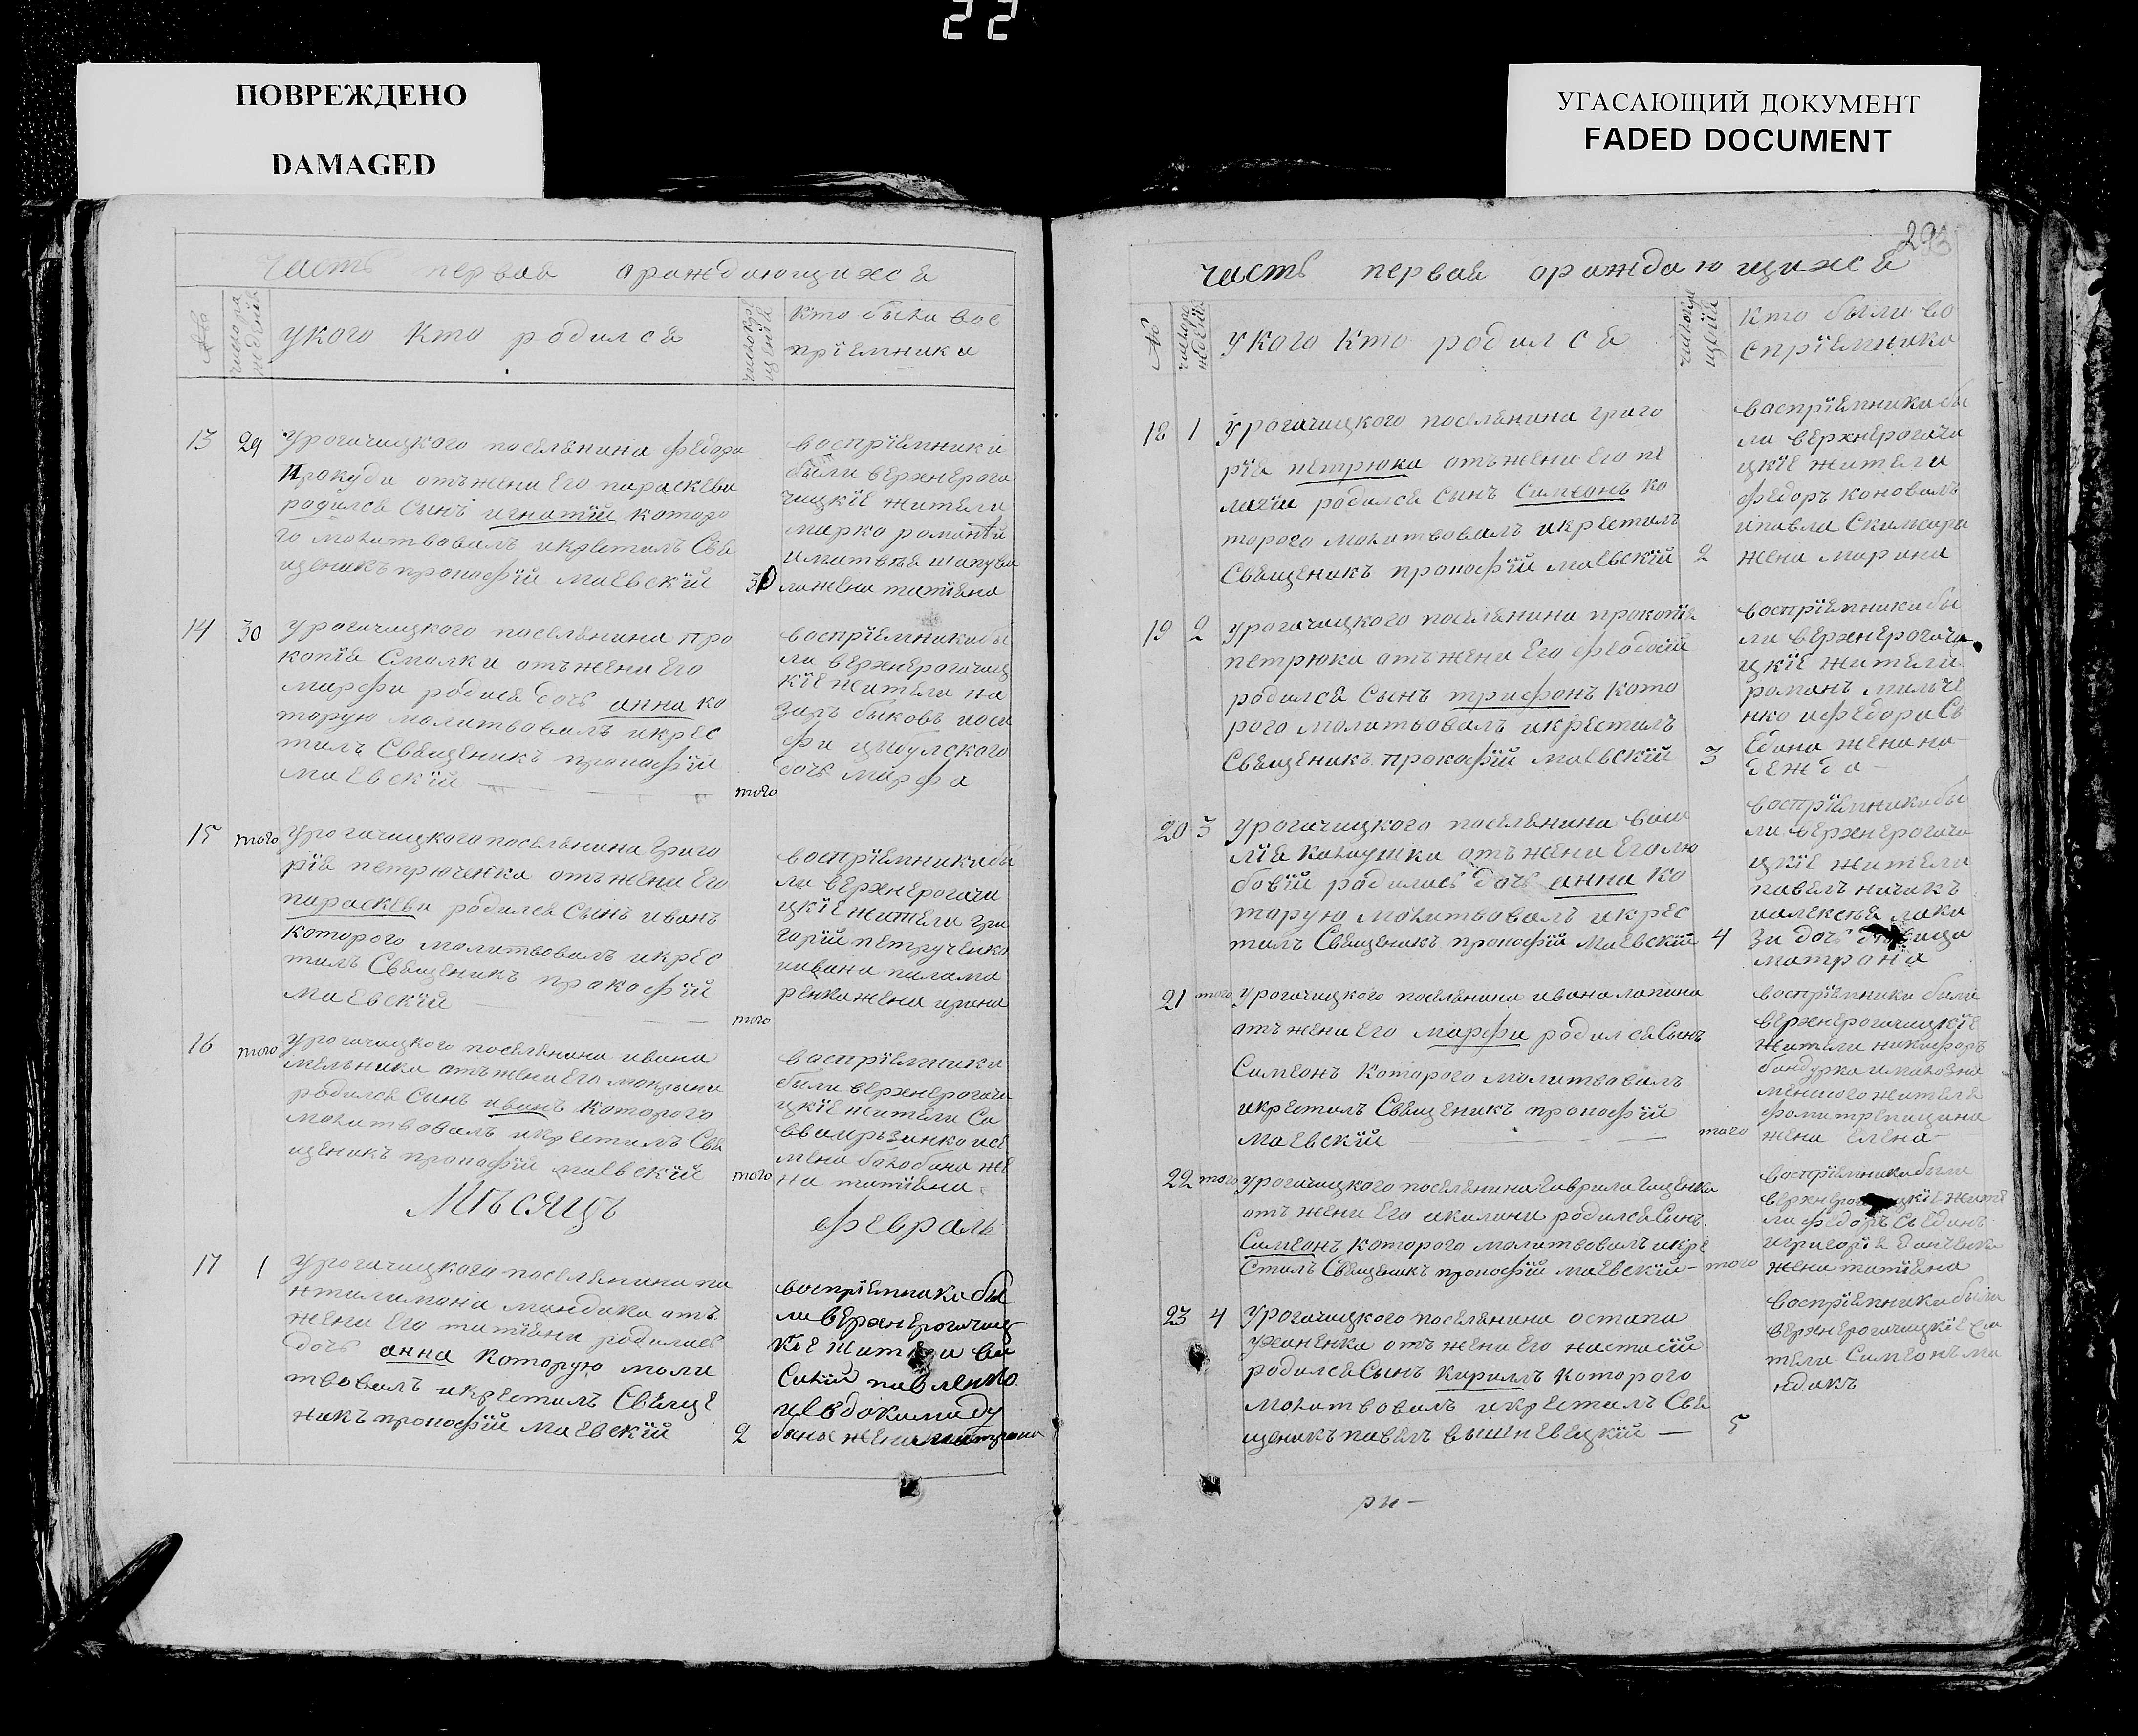 22
ПОВРЕЖДЕНО
DAMAGED
УГАСАЮЩИЙ ДОКУМЕНТ
FADED DOCUMENT
часть первая ораждающихся
№
число ра
жденія
укого кто родился
число кре
щенія
кто были вос
пріемники
13 29
Урогачицкого поселянина федора
Прокуди отъ жени его параскеви
родился сынъ игнатій которо
го молитвовалъ икрестилъ Свя
щеникъ прокофій маевскій
30
воспріемники
были верхнерога
чицкіе жители
марко
имитвея шапува
ла жена татіяна
14 30
урогачицкого поселянина про
копія Смолки отъ жени его
марфи родися дочь анна ко
торую молитвовалъ икрес
тилъ Священикъ прокофій
маевскій
того
воспріемники бы
ли верхнерогачиц
кіе жители на
заръ быковъ иоси
фа цыбулского
дочь марфа
15 того
урогачицкого поселянина григо
рія петрюченка отъ жени его
параскеви родился сынъ иванъ
которого молитвовалъ икрес
тилъ Священикъ прокофій
маевскій
того
воспріемники бы
ли верхнерогачи
цкіе жители гри
горій петрученко
иивана палама
ренка жена ирина
16 того
урогачицкого поселянина ивана
мельника отъ жени его
родился сынъ иванъ которого
молитвовалъ икрестилъ Свя
щеникъ прокофій маевскій
того
воспріемники
были верхнерогачи
цкіе жители Са
исе
мена балобана же
на татіяна
Мѣсяцъ февраль
17 1
Урогачицкого поселянина па
нтилимона мандика отъ
жени его татіяни родилась
дочь анна которую моли
твовалъ икрестилъ Свяще
никъ прокофій маевскій
2
воспріемники бы
ли верхнерогачиц
кіе жители ва
силій павленко
иевдокима ду
жена матрона
293
часть первая ораждающихся
№
число ра
жденія
укого кто родился
число кре
щенія
кто были во
спріемники
18 1
Урогачицкого поселянина григо
рія петрюка отъ жени его пе
лагіи родился сынъ Симеонъ ко
торого молитвовалъ икрестилъ
Священикъ прокофій маевскій
2
воспріемники бы
ли верхнерогачи
цкіе жители
федоръ коновалъ
ипавла
жена марина
19 2
урогачицкого поселянина прокопія
петрюка отъ жени его феодосіи
родился сынъ трифонъ кото
рого молитвовалъ икрестилъ
Священикъ прокофій маевскій
3
воспріемники бы
ли верхнерогачи
цкіе жители
романъ мильче
нко ифедора Сь
едина жена на
дежда
20 3
урогачицкого поселянина васи
лія отъ жени его лю
бовій родилась дочь анна ко
торую молитвовалъ икрес
тилъ Священикъ прокофій маевскій
4
воспріемники бы
ли верхнерогачи
цкіе жители
павелъ ничикъ
иалексея лаки
зи дочь девица
матрона
21 того
урогачицкого поселянина ивана лапина
отъ жени его марфи родился Сынъ
Симеонъ которого молитвовалъ
икрестилъ Священикъ прокофій
маевскій
того
воспріемники были
верхнерогачицкіе
жители никифоръ
бандурка ималозна
менского жителя
жена елена
22 того
урогачицкого поселянина гаврила гащенка
отъ жени его акилини родился Сынъ
Симеонъ которого молитвовалъ икре
стилъ Священикъ прокофій маевскій
того
воспріемники были
верхнерогачицкіе жите
ли федоръ Сьединъ
игригорія
жена татіяна
23 4
урогачицкого поселянина остапа
ужаненка отъ жени его настасіи
родился Сынъ Кирилъ которого
молитвовалъ икрестилъ Свя
щеникъ павелъ вышневецкій
5
воспріемники были
верхнерогачицкіе жи
тели Симеонъ ма
ндикъ